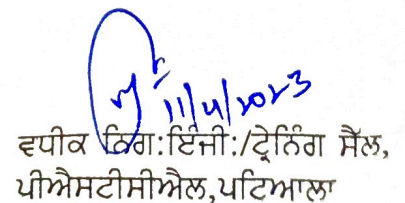 11/4/2023
ਵਧੀਕ ਨਿਗ:ਇੰਜੀ:/ਟ੍ਰੇਨਿੰਗ ਸੈੱਲ,
ਪੀਐਸਟੀਸੀਐਲ,ਪਟਿਆਲਾ